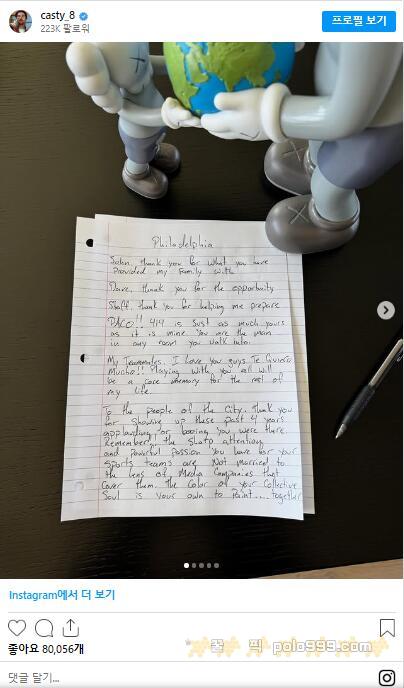 casty_8
223K 팔로워
프로필 보기
Philadelphia
thank you for what you have
Provided my family with
Dave, thank you for the opportunity
Staff, thank you for helping me prepare
PACO!! 4/4 is Just as much yours
as it is mine. You are the man
in any room you walk into.
My Teammates. I Love you guys. Te Quiero
Mucho!! Playing with you all will
be a core memory for the rest of
my life.
To the people of the City. Thank you
for showing up these past 4 years
applauding or booing you were there.
Remember!! the sharp attention
and powerful passion you have for your
sports teams are Not married to
the lens of Media Companies that
Cover them. The Color of your Collective
Soul is your own to Paint.... Together
Instagram에서 더 보기
좋아요 80,056개
픽 polo999.com
댓글 달기...